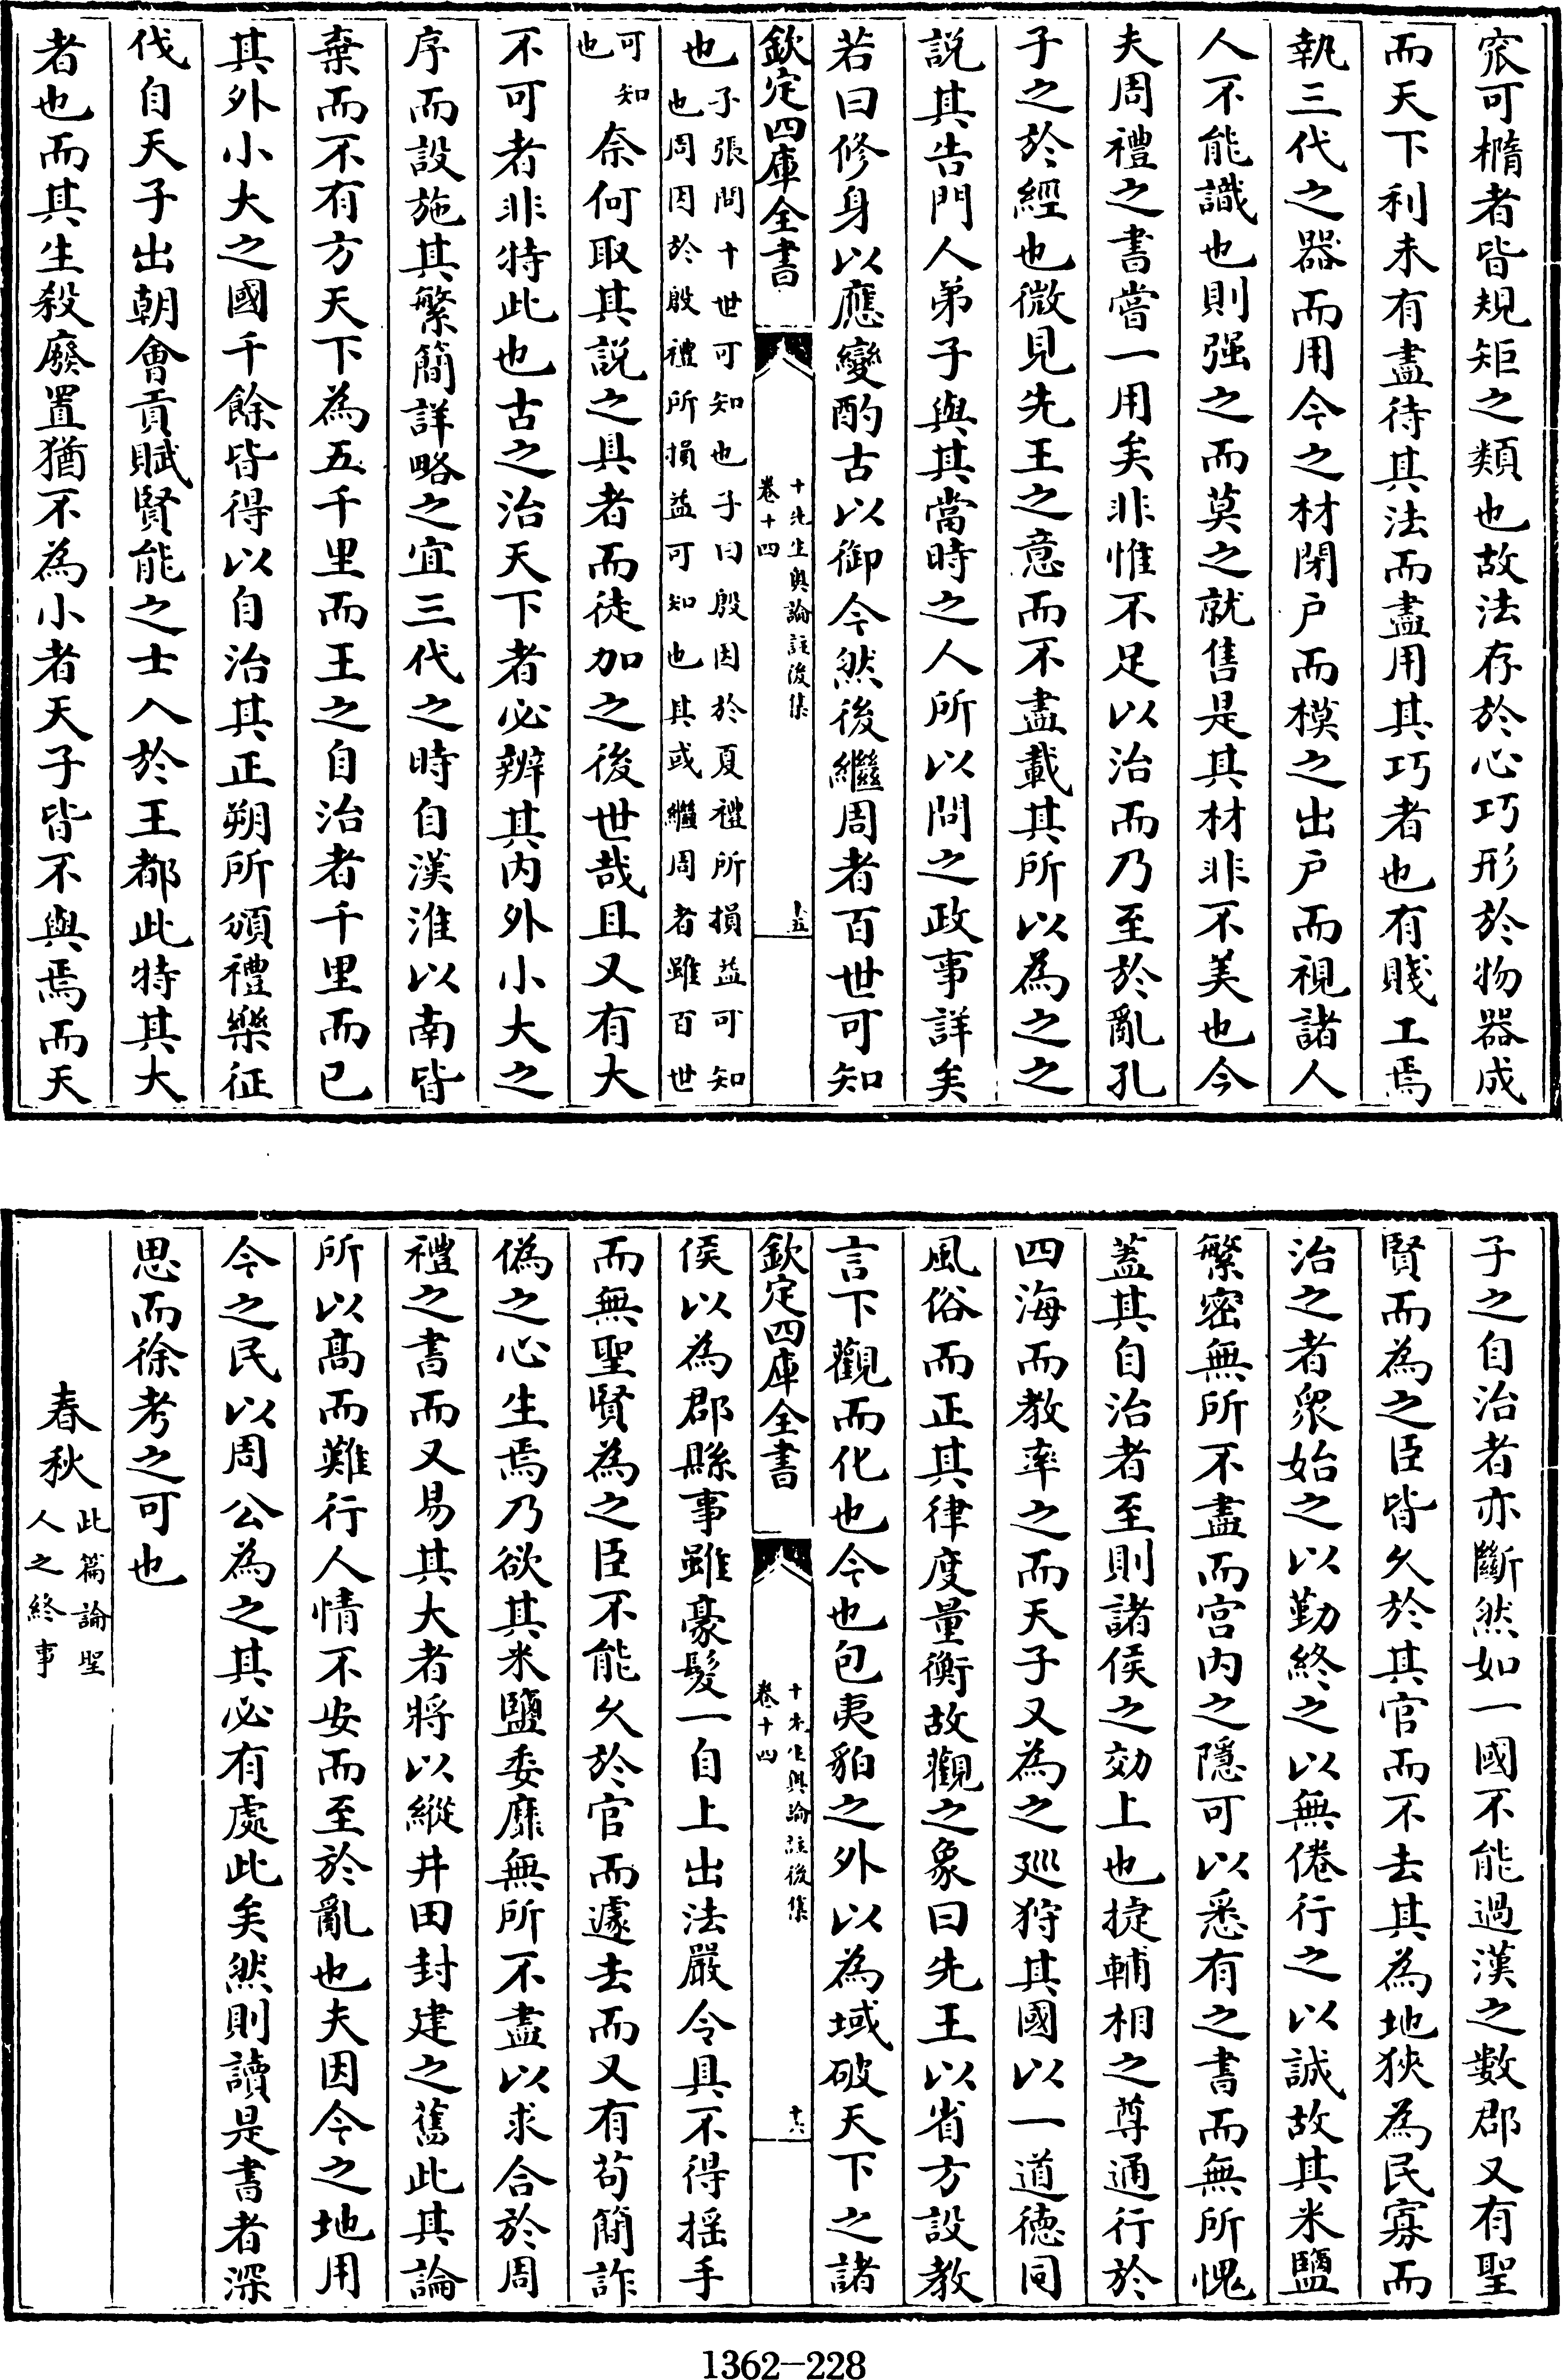 窊可橢者皆規矩之類也故法存於心巧形於物器成
而天下利未有盡待其法而盡用其巧者也有賤工焉
執三代之器而用今之材閉户而模之出户而視諸人
人不能識也則强之而莫之就售是其材非不美也今
夫周禮之書嘗一用矣非惟不足以治而乃至於亂孔
子之於經也微見先王之意而不盡載其所以為之之
說其告門人弟子與其當時之人所以問之政事詳矣
若曰修身以應變酌古以御今然後繼周者百世可知
欽定四庫全書
十先生奧論註後集
卷十四
十五
也
子張問十世可知也子曰殷因於夏禮所損益可知
也周因於殷禮所損益可知也其或繼周者雖百世
可知
也
奈何取其說之具者而徒加之後世哉且又有大
不可者非特此也古之治天下者必辨其内外小大之
序而設施其繁簡詳略之宜三代之時自漢淮以南皆
棄而不有方天下為五千里而王之自治者千里而已
其外小大之國千餘皆得以自治其正朔所頒禮樂征
伐自天子出朝會貢賦賢能之士入於王都此特其大
者也而其生殺廢置猶不為小者天子皆不與焉而天
子之自治者亦斷然如一國不能過漢之數郡又有聖
賢而為之臣皆久於其官而不去其為地狹為民寡而
治之者衆始之以勤終之以無倦行之以誠故其米鹽
繁密無所不盡而宫内之隱可以悉有之書而無所愧
蓋其自治者至則諸侯之効上也捷輔相之尊通行於
四海而教率之而天子又為之廵狩其國以一道德同
風俗而正其律度量衡故觀之象曰先王以省方設教
言下觀而化也今也包夷貊之外以為域破天下之諸
欽定四庫全書
十先生奧論註後集
卷十四
十六
侯以為郡縣事雖豪髮一自上出法嚴令具不得摇手
而無聖賢為之臣不能久於官而遽去而又有苟簡詐
偽之心生焉乃欲其米鹽委靡無所不盡以求合於周
禮之書而又易其大者將以縱井田封建之舊此其論
所以髙而難行人情不安而至於亂也夫因今之地用
今之民以周公為之其必有處此矣然則讀是書者深
思而徐考之可也
春秋
此篇論聖
人之終事
1362-228